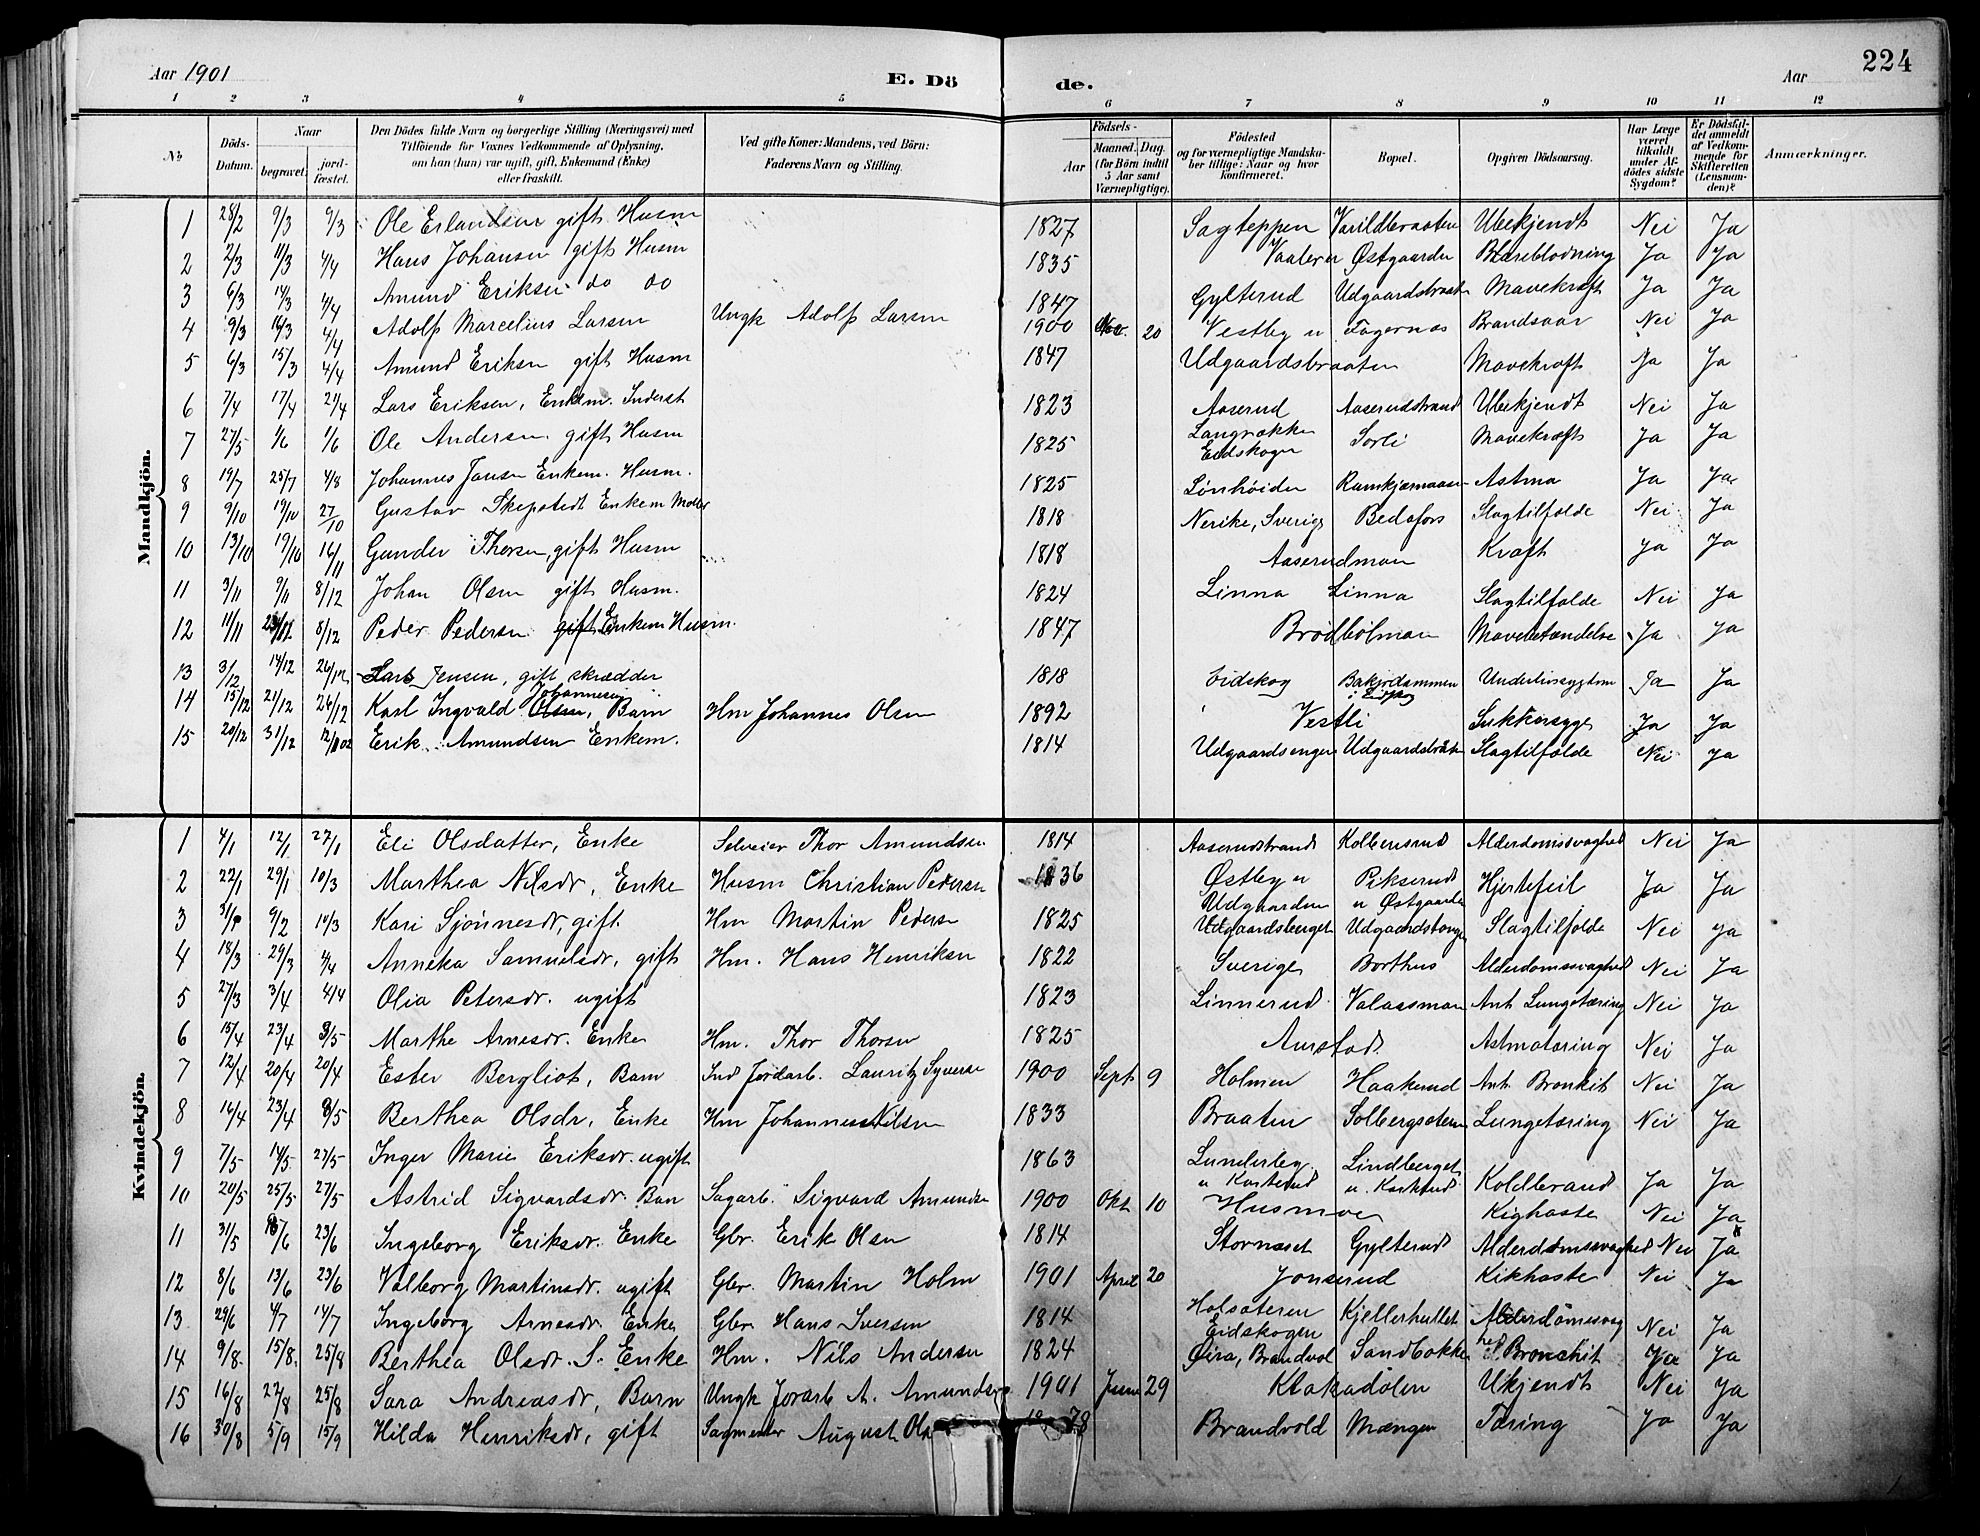 Aar 1901 E. Dö de. Aar 224
1 2 3 4 5 6 7 8 9 10 11 12
№ Döds-Datum. Naar begravet. jordfæstet. Den Dödes fulde Navn og borgerlige Stilling (Næringsvei) med Tilföiende for Voxnes Vedkommende af Oplysning, om han (hun) var ugift, gift, Enkemand (Enke) eller fraskilt. Ved gifte Koner: Mandens, ved Börn: Faderens Navn og Stilling. Födsels- Aar Maaned. Dag. (for Börn indtil 5 Aar samt Værnepligtige). Födested og for værnepligtige Mandskaber tillige: Naar og hvor Konfirmeret. Bopæl. Opgiven Dödsaarsag. Har Læge været tilkaldt under Afdödes sidste Sygdom? Er Dödsfaldet anmeldt af Vedkommende for Skifteretten (Lensmanden)? Anmærkninger.
Mandkjön.
1 28/2 9/3 9/3 Ole Erlandsen gift Husm 1827 Sagteppen Varildbraaten Ubekjendt Nei Ja
2 2/3 11/3 4/4 Hans Johansen gift Husm 1835 Vaaler u Østgaarden Blæreblødning Ja Ja
3 6/3 14/3 4/4 Amund Eriksen do do 1847 Gylterud Udgaardsbraat Mavekræft Ja Ja
4 9/3 16/3 4/4 Adolf Marcelius Larsen Ungk Adolf Larsen 1900 Nov. 20 Vestby u Fagernæs Brandsaar Nei Ja
5 6/3 15/3 4/4 Amund Eriksen gift Husm 1847 Udgaardsbraaten Mavekræft Ja Ja
6 7/4 17/4 21/4 Lars Eriksen, Enkem. Inderst 1823 Aaserud Aaserudstrand Ubekjendt Nei Ja
7 27/5 1/6 1/6 Ole Andersen gift Husm 1825 Langrækka Eidskogen Sorli Mavekræft Ja Ja
8 19/7 25/7 4/8 Johannes Jansen Enkem. Husm. 1825 Lønhøiden Ramkjærnaasen Astma Ja Ja
9 9/10 19/10 27/10 Gustav Skepstedt Enkem Møller 1818 Nerike, Sverige Bedafors Slagtilfælde Nei Ja
10 13/10 19/10 16/11 Gunder Thorsen, gift Husm 1818 Aaserudmoen Kræft Ja Ja
11 3/11 9/11 8/12 Johan Olsen gift Husm. 1824 Linna Linna Slagtilfælde Nei Ja
12 11/11 8/12 Peder Pedersen gift Enkem Husm. 1847 Brødbølmoen Mavebetændelse Ja Ja
13 3/12 14/12 26/12 Lars Jensen, gift skrædder 1818 Eidskog i Eidskog Underlivssygdom Ja Ja
14 15/12 21/12 26/12 Karl Ingvald Olsen, Johannesen Barn Hm Johannes Olsen 1892 Vestli Sukkersyge Ja Ja
15 20/12 31/12 12/1 02 Erik Amundsen Enkem. 1814 Udgaardsengen Udgaardsbråten Slagtilfælde Nei Ja
Kvindekjön.
1 4/1 12/1 27/1 Eli Olsdatter, Enke Selveier Thor Amundsen 1814 Aaserudstrand Kolbensrud Alderdomssvaghed Nei Ja
2 22/1 29/1 10/3 Marthea Nilsdr, Enke Husm Christian Pedersen 1836 Østby u Udgaarden Pikserud u Østgaarden Hjertefeil Ja Ja
3 31/1 9/2 10/3 Kari Sjønnesdr, gift Hm Martin Pedersen 1825 Udgaardsberget Udgaardstangen Slagtilfælde Nei Ja
4 18/3 29/3 4/4 Anneka Samuelsdr, gift Hm. Hans Henriksen 1822 Sverige Borthus Alderdomssvaghed Nei Ja
5 27/3 3/4 4/4 Olia Petersdr. ugift 1823 Linnerud Valaasmoen Ant Lungetæring Nei Ja
6 15/4 23/4 3/5 Marthe Arnesdr. Enke Hm. Thor Thorsen 1825 Aurstad Astmatæring Nei Ja
7 12/4 20/4 20/4 Ester Bergliot, Barn Ind Jordarb. Lauritz Syversen 1900 Sept 9 Holmen Haakerud Ant. Bronkit Nei Ja
8 16/4 23/4 3/5 Berthea Olsdr, Enke Hm Johannes Nilsen 1833 Braaten Solbergsæteren Lungetæring Nei Ja
9 7/5 14/5 27/5 Inger Marie Eriksdr. ugift 1863 Lunderby u Karterud Lindberget u. Karterud Koldbrand Ja Ja
10 20/5 25/5 27/5 Astrid Sigvardsdr. Barn Sagarb. Sigvard Amundsen 1900 Okt 10 Husmoen Kighoste Nei Ja
11 31/5 8/6 23/6 Ingeborg Eriksdr. Enke Gbr. Erik Olsen 1814 Stornæset Gylterud Alderdomssvaghed Nei Ja
12 8/6 13/6 23/6 Valborg Martinsdr. ugift Gbr. Martin Holm 1901 April 20 Jonserud Kikhoste Nei Ja
13 29/6 4/7 14/7 Ingeborg Arnesdr. Enke Gbr. Hans Iversen 1814 Holsæteren Eidskogen Kjellerhullet Alderdomssvaghed Nei Ja
14 9/8 15/8 25/8 Berthea Olsdr. S. Enke Hm. Nils Andersen 1824 Øira, Brandvol Sandbakken Bronchit Ja Ja
15 16/8 22/8 25/8 Sara Andreasdr, Barn Ungk Jorarb A. Amundsen 1901 Juni 29 Klokadølen Ukjendt Nei Ja
16 30/8 5/9 15/9 Hilda Henriksdr, gift Sagmester August Ol 78 Brandvold Mængen Tæring Ja Ja